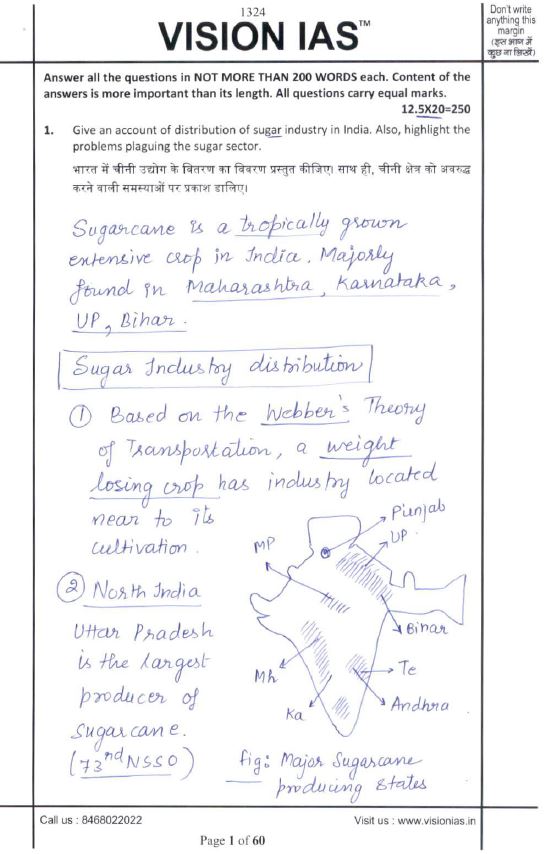 1324
VISION IAS™
Don't write
anything this
margin
(इस भाग में
कुछ ना लिखें)
Answer all the questions in NOT MORE THAN 200 WORDS each. Content of the
answers is more important than its length. All questions carry equal marks.
12.5X20=250
1. Give an account of distribution of sugar industry in India. Also, highlight the
problems plaguing the sugar sector.
भारत में चीनी उद्योग के वितरण का विवरण प्रस्तुत कीजिए। साथ ही, चीनी क्षेत्र को अवरुद्ध
करने वाली समस्याओं पर प्रकाश डालिए।
Sugarcane is a tropically grown
extensive crop in India. Majorly
found in Maharashtra, Karnataka,
UP, Bihar.
Sugar Industry distribution
① Based on the Webber's Theory
of Transportation, a weight
losing crop has industry located
near to its
cultivation.
② North India
Uttar Pradesh
is the largest
producer of
Sugarcane.
(73rd NSSO)
Punjab
UP
MP
Bihar
Mh
Te
Ka
Andhra
fig: Major Sugarcane
producing States
Call us : 8468022022
Visit us : www.visionias.in
Page 1 of 60